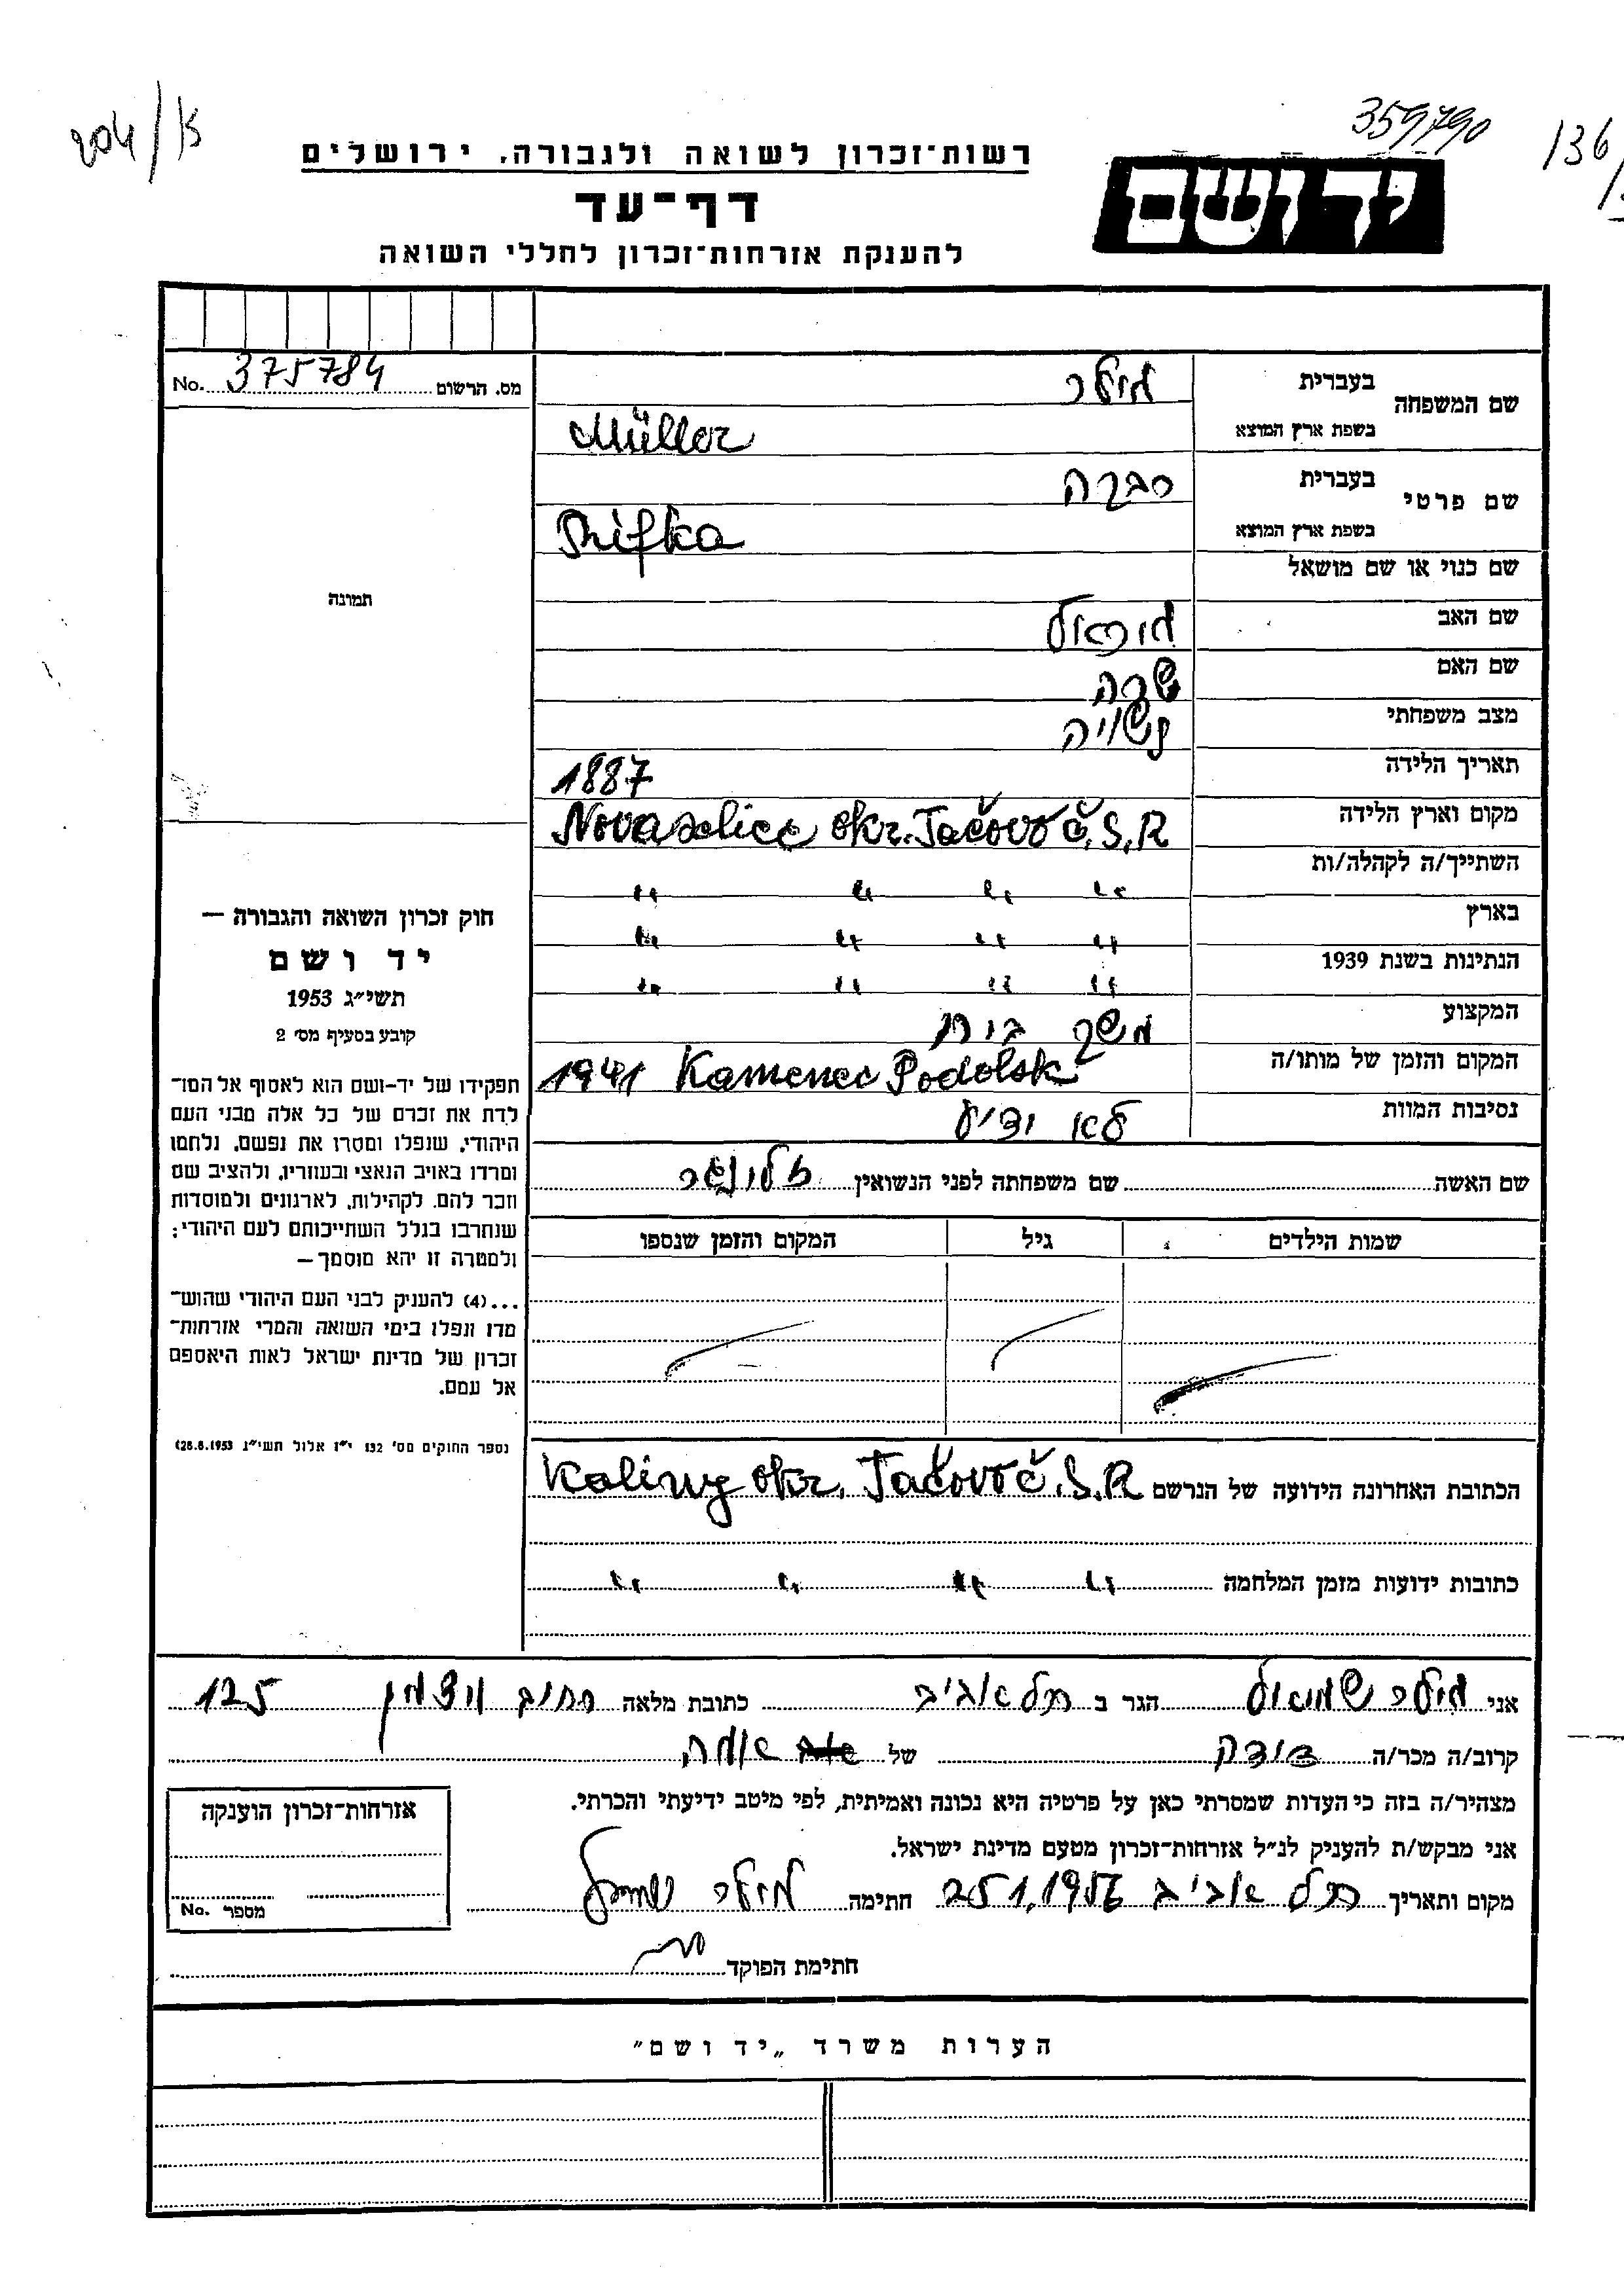 204/א
359790
136
רשות־זכרון לשואה ולגבורה, ירושלים
דף־עד
להענקת אזרחות־זכרון לחללי השואה
יד ושם
No. 375784 מס. הרשום
שם המשפחה
בעברית מילר
בשפת ארץ המוצא Müller
שם פרטי
בעברית רבקה
בשפת ארץ המוצא Rifka
שם כנוי או שם מושאל
שם האב
שם האם שרה
מצב משפחתי נשויה
תאריך הלידה 1887
מקום וארץ הלידה Novaselice okr. Tačovo Č.S.R
השתייך/ה לקהלה/ות " " " "
בארץ " " " "
הנתינות בשנת 1939 " " " "
המקצוע משק בית
המקום והזמן של מותו/ה 1941 Kamenec Podolsk
נסיבות המוות לא ידיע
תמונה
חוק זכרון השואה והגבורה —
יד ושם
תשי״ג 1953
קובע בסעיף מס׳ 2
תפקידו של יד-ושם הוא לאסוף אל המו־
לדת את זכרם של כל אלה מבני העם
היהודי, שנפלו ומסרו את נפשם, נלחמו
ומרדו באויב הנאצי ובעוזריו, ולהציב שם
וזכר להם, לקהילות, לארגונים ולמוסדות
שנחרבו בגלל השתייכותם לעם היהודי;
ולמטרה זו יהא מוסמך—
...(4) להעניק לבני העם היהודי שהוש־
מדו ונפלו בימי השואה והמרי אזרחות־
זכרון של מדינת ישראל לאות היאספם
אל עמם.
(ספר החוקים מס׳ 132 י״ז אלול תשי״ג 28.8.1953)
שם האשה שם משפחתה לפני הנשואין
שמות הילדים גיל המקום והזמן שנספו
הכתובת האחרונה הידועה של הנרשם Kaliny okr. Tačovo Č.S.R
כתובות ידועות מזמן המלחמה " " " "
אני מילר שמואל הגר ב תל אביב כתובת מלאה רחוב ויצמן 125
קרוב/ה מכר/ה דודה של
מצהיר/ה בזה כי העדות שמסרתי כאן על פרטיה היא נכונה ואמיתית, לפי מיטב ידיעתי והכרתי.
אני מבקש/ת להעניק לנ״ל אזרחות־זכרון מטעם מדינת ישראל.
מקום ותאריך תל אביב חתימה מילר שמואל
חתימת הפוקד
אזרחות־זכרון הוענקה
No. מספר
הערות משרד „יד ושם״